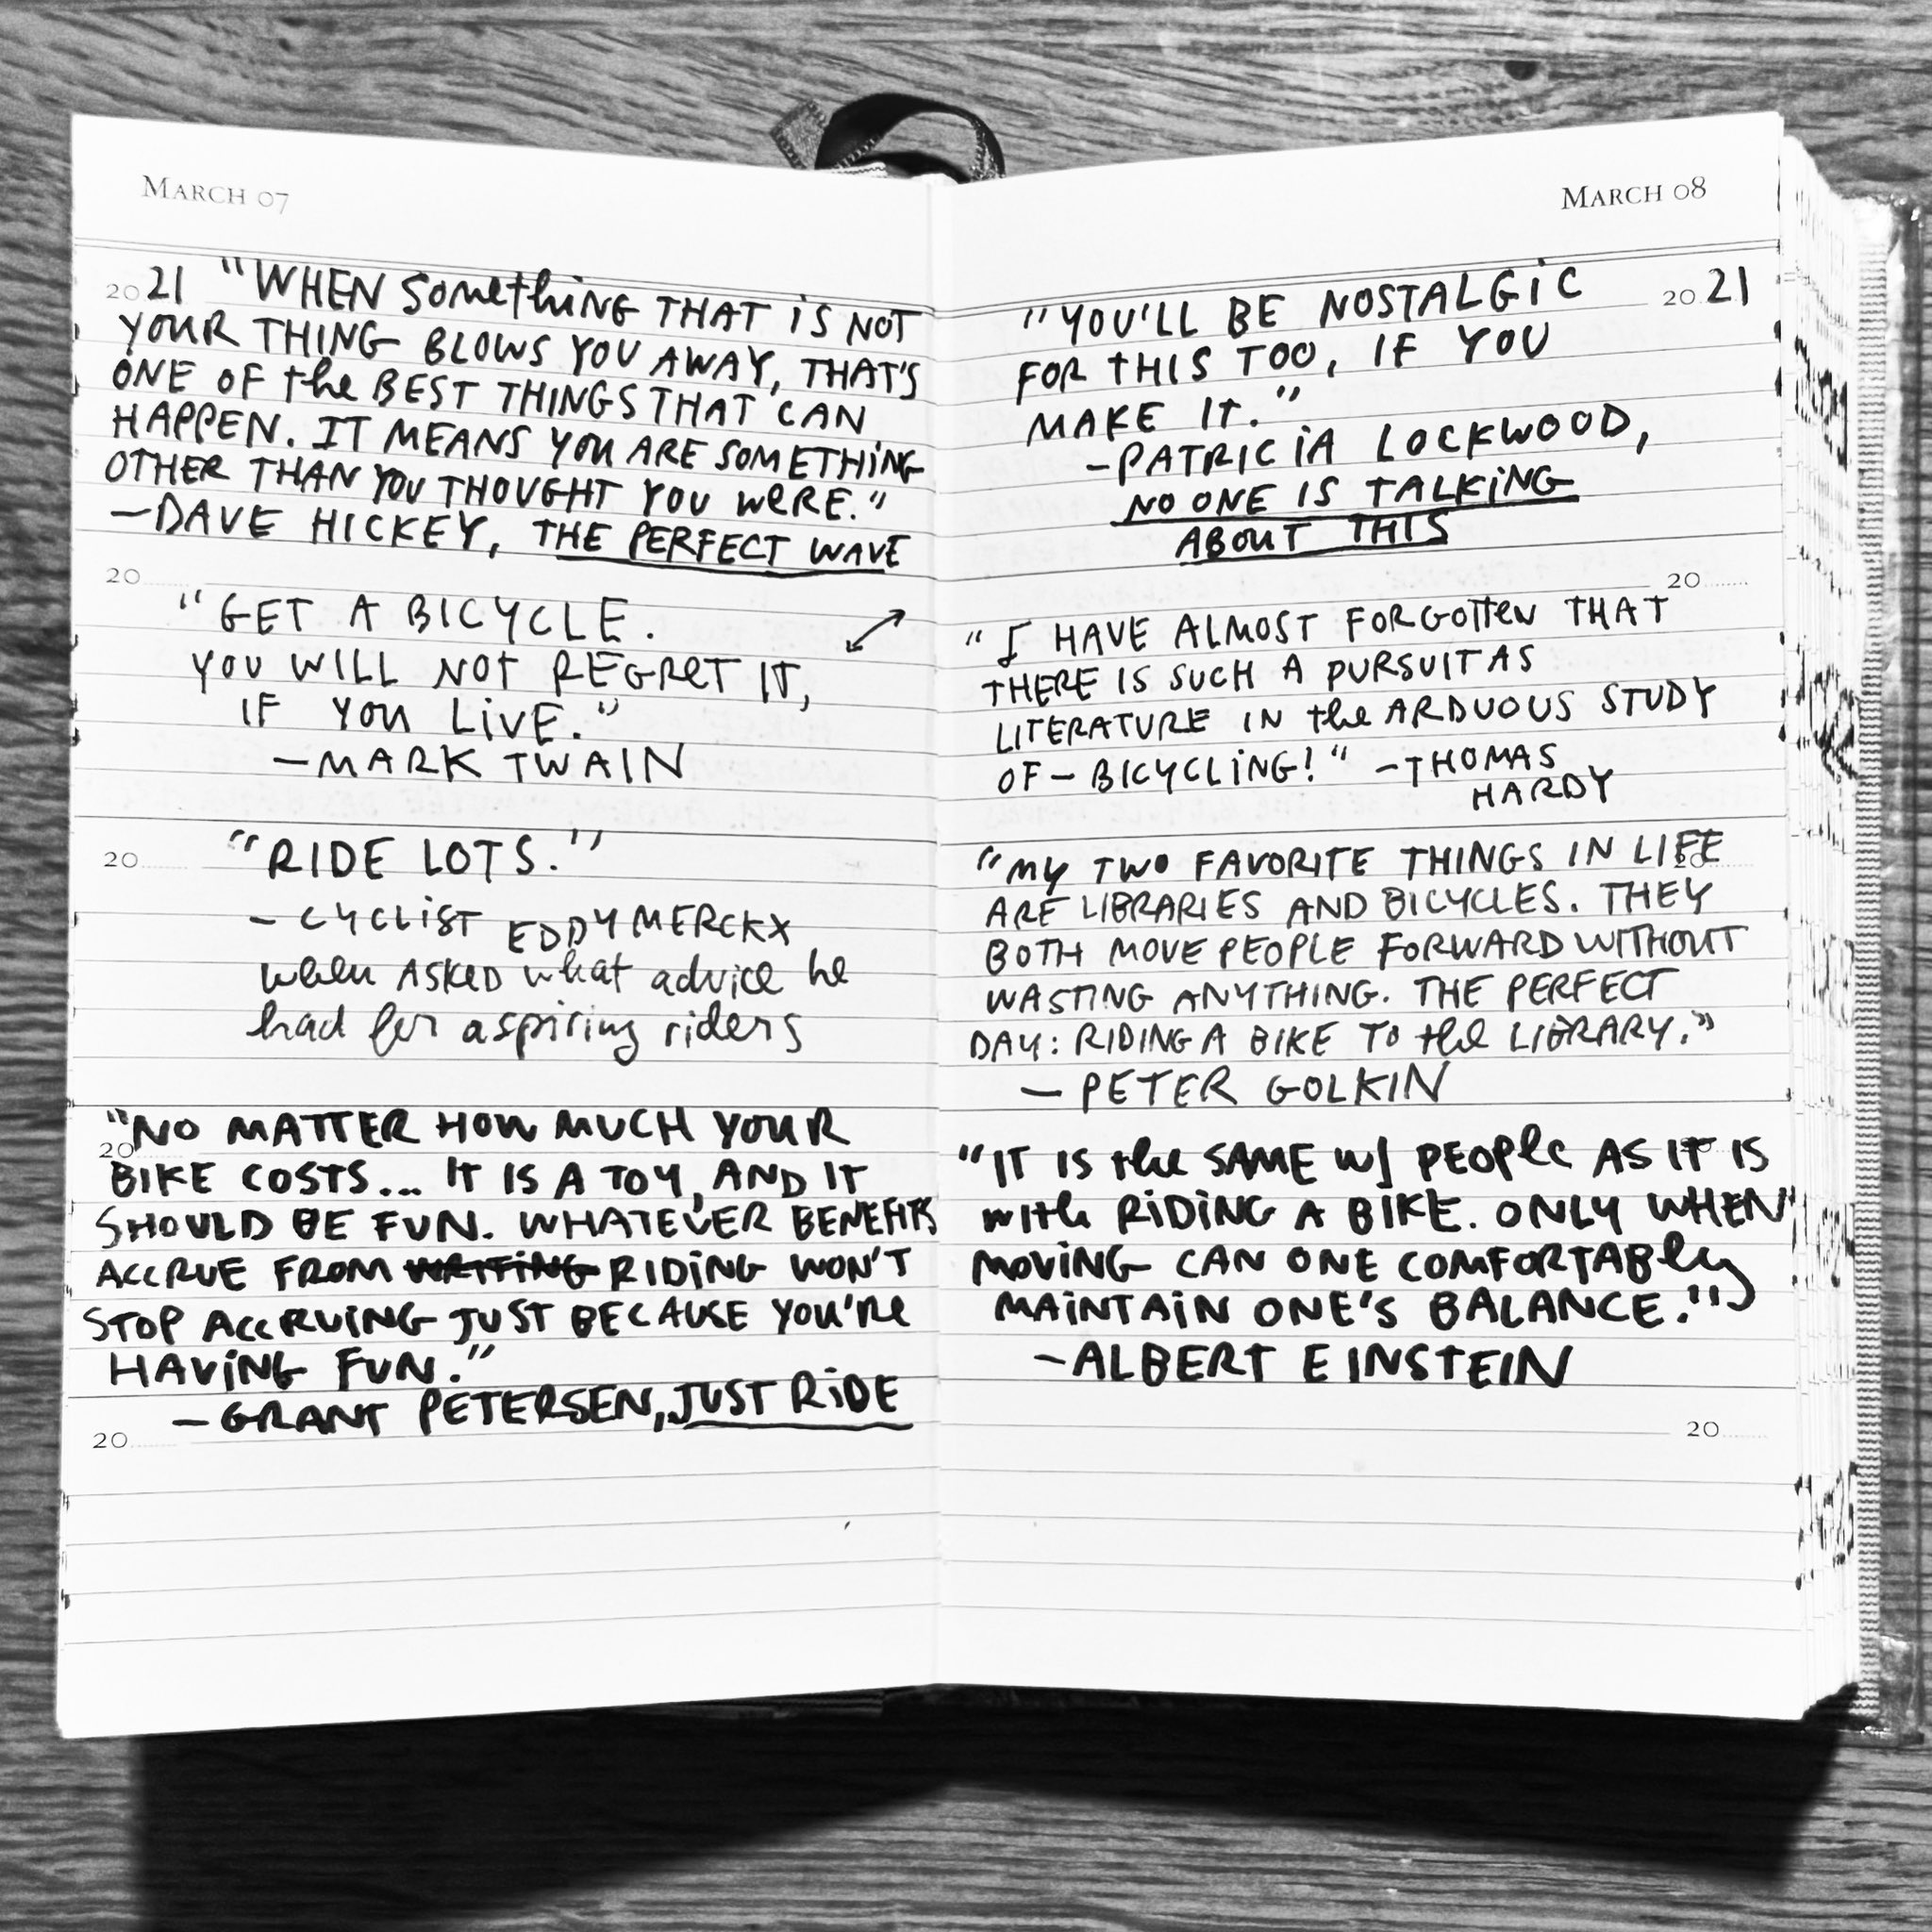 MARCH 07
2021 "WHEN SOMETHING THAT IS NOT
YOUR THING BLOWS YOU AWAY, THAT'S
ONE OF the BEST THINGS THAT CAN
HAPPEN. IT MEANS YOU ARE SOMETHING
OTHER THAN YOU THOUGHT YOU WERE."
—DAVE HICKEY, THE PERFECT WAVE
20
"GET A BICYCLE.
YOU WILL NOT REGRET IT,
IF YOU LIVE."
—MARK TWAIN
20
"RIDE LOTS."
— CYCLIST EDDY MERCKX
when ASKED what advice he
had for aspiring riders
20
"NO MATTER HOW MUCH YOUR
BIKE COSTS... IT IS A TOY, AND IT
SHOULD BE FUN. WHATEVER BENEFITS
ACCRUE FROM WRITING RIDING WON'T
STOP ACCRUING JUST BECAUSE YOU'RE
HAVING FUN."
—GRANT PETERSEN, JUST RIDE
20
MARCH 08
"YOU'LL BE NOSTALGIC 2021
FOR THIS TOO, IF YOU
MAKE IT."
—PATRICIA LOCKWOOD,
NO ONE IS TALKING
ABOUT THIS
20
"I HAVE ALMOST FORGOTTEN THAT
THERE IS SUCH A PURSUIT AS
LITERATURE IN the ARDUOUS STUDY
OF — BICYCLING!" —THOMAS
HARDY
20
"MY TWO FAVORITE THINGS IN LIFE
ARE LIBRARIES AND BICYCLES. THEY
BOTH MOVE PEOPLE FORWARD WITHOUT
WASTING ANYTHING. THE PERFECT
DAY: RIDING A BIKE TO the LIBRARY."
— PETER GOLKIN
20
"IT IS the SAME W/ PEOPLE AS IT IS
with RIDING A BIKE. ONLY WHEN
MOVING CAN ONE COMFORTABLY
MAINTAIN ONE'S BALANCE."
—ALBERT EINSTEIN
20